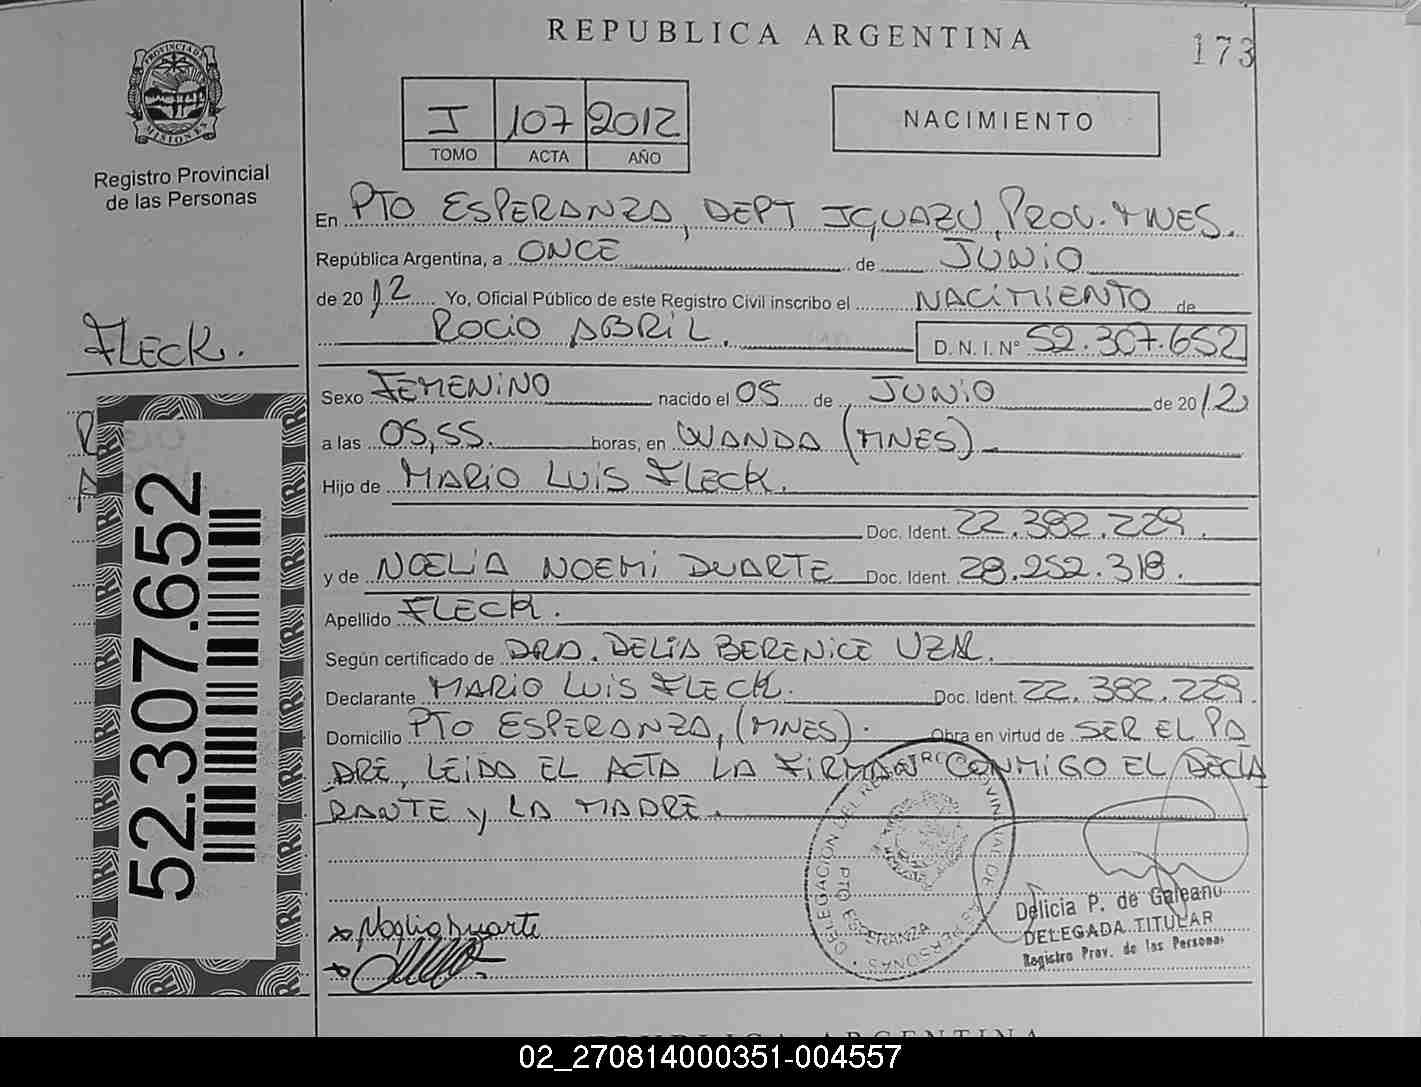 REPUBLICA ARGENTINA
173
PROVINCIA DE MISIONES
Registro Provincial
de las Personas
I 107 2012
TOMO ACTA AÑO
NACIMIENTO
En PTO ESPERANZA, DEPT IGUAZU, PROV. MNES.
República Argentina, a ONCE de JUNIO
de 2012 Yo, Oficial Público de este Registro Civil inscribo el NACIMIENTO de
ROCIO ABRIL. D. N. I. N° 52.307.652
FLECK.
Sexo FEMENINO nacido el 05 de JUNIO de 2012
a las 05,55. horas, en WANDA (MNES)
Hijo de MARIO LUIS FLECK.
Doc. Ident. 22.382.229.
y de NOELIA NOEMI DUARTE Doc. Ident. 28.252.318.
Apellido FLECK.
Según certificado de DRA. DELIA BERENICE UZAL.
Declarante MARIO LUIS FLECK. Doc. Ident. 22.382.229.
Domicilio PTO ESPERANZA, (MNES). Obra en virtud de SER EL PA
DRE, LEIDA EL ACTA LA FIRMAN CONMIGO EL DECLA
RANTE y LA MADRE.
52.307.652
DELEGACION DEL REGISTRO PROVINCIAL DE LAS PERSONAS
PTO ESPERANZA
Noelia Duarte
Delicia P. de Galeano
DELEGADA TITULAR
Registro Prov. de las Personas
REPUBLICA ARGENTINA
02_270814000351-004557